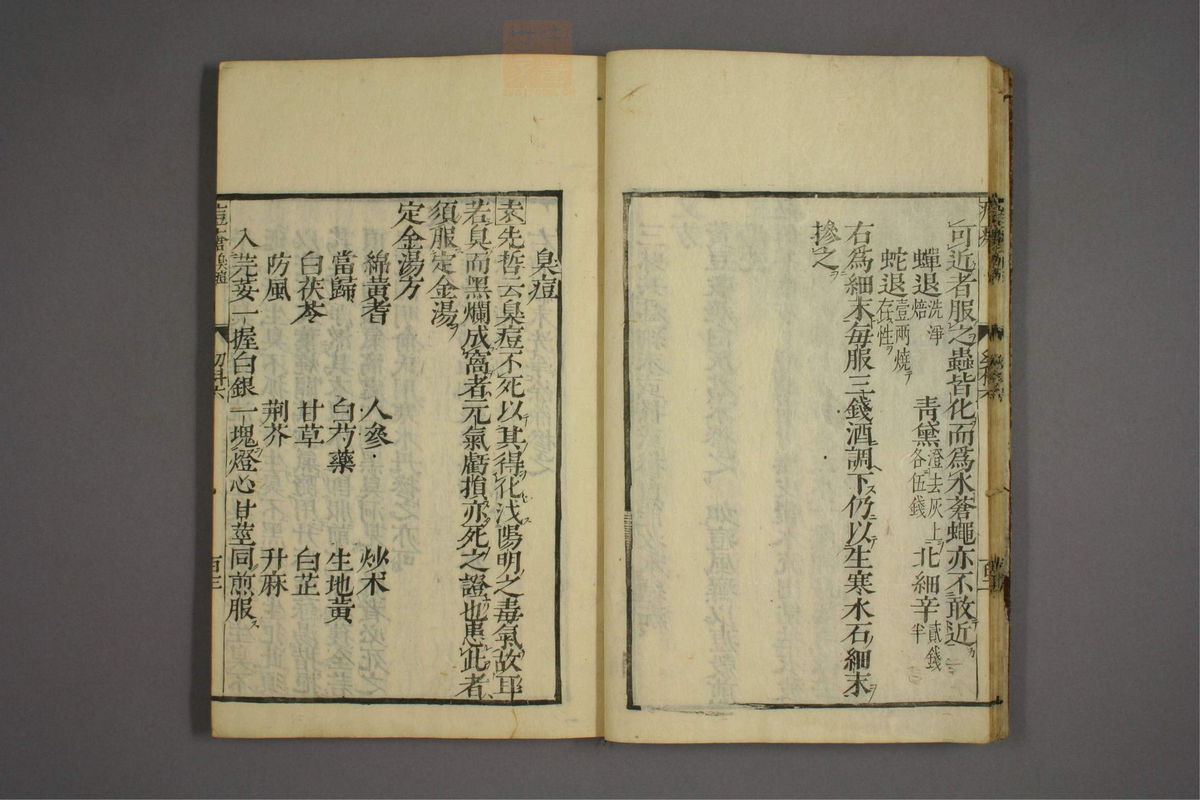 可近者服之蟲皆化而爲水蒼蠅亦不敢近
蟬退洗淨焙 青黛澄去灰上各伍錢 北細辛貳錢半
蛇退壹兩燒存性
右爲細末每服三錢酒調下仍以生寒水石細末
摻之
臭痘
袁先哲云臭痘不死以其得化泄陽明之毒氣故耳
若臭而黑爛成窩者元氣虧損亦死之證也患此者
須服定金湯
定金湯方
綿黃耆 人參 炒朮
當歸 白芍藥 生地黃
白茯苓 甘草 白芷
防風 荆芥 升麻
入芫荽一握白銀一塊燈心甘莖同煎服